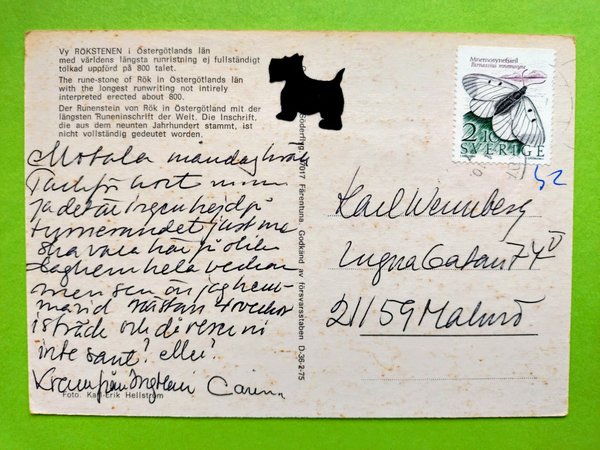 Vy RÖKSTENEN i Östergötlands län
med världens längsta runristning ej fullständigt
tolkad uppförd på 800 talet.
The rune-stone of Rök in Östergötlands län
with the longest runwriting not intirely
interpreted erected about 800.
Der Runenstein von Rök in Östergötland mit der
längsten Runeninschrift der Welt. Die Inschrift,
die aus dem neunten Jahrhundert stammt, ist
nicht vollständig gedeutet worden.
Motala måndag kväll
Tack för kort
Ja det är ingen hejd på
turnerandet just nu
ska vara här på
hela veckan
men sen en
nästan 4 veckor
i sträck och då ses vi
inte sant? eller?
Kram från Carin
Foto: Karl-Erik Hellström
Söderflyg, 17017 Färentuna. Godkänd av försvarsstaben D-36-2-75
Mnemosynefjäril
Parnassius mnemosyne
2.10
SVERIGE
52
Karl Wennberg
Ingna Gatan 74
21159 Malmö